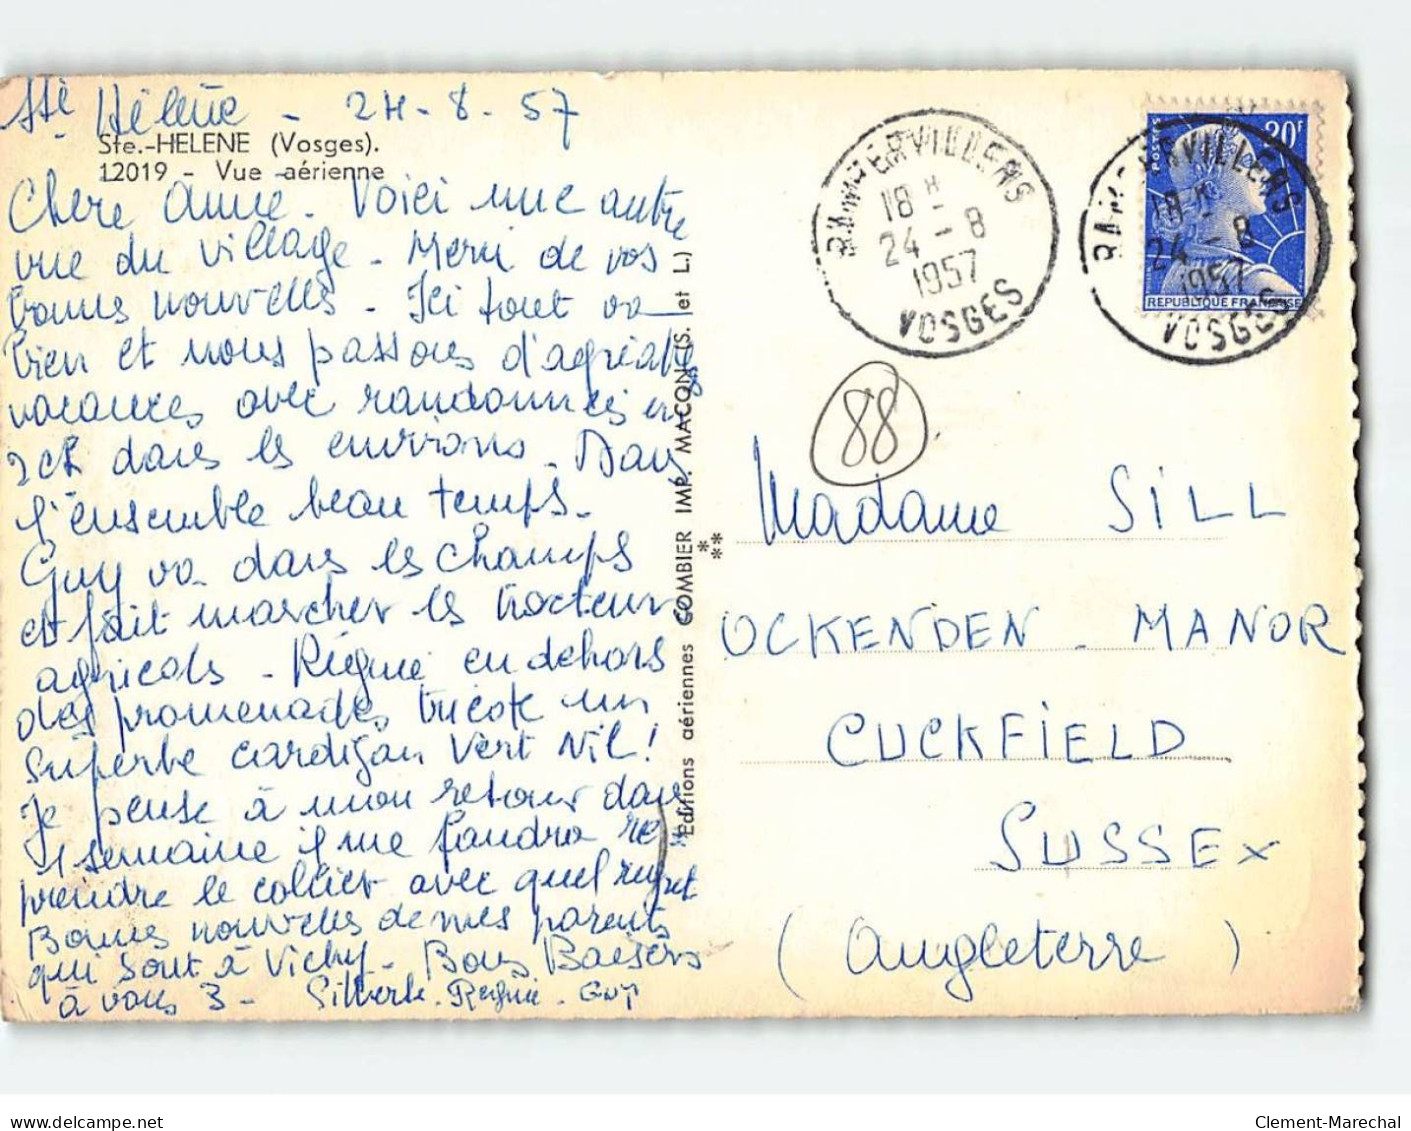 Ste Hélène - 24-8-57
Ste.-HELENE (Vosges).
12019 - Vue aérienne
Chère Anne. Voici une autre
vue du village. Merci de vos
bonnes nouvelles. Ici tout va
bien et nous passons d'agréables
vacances avec randonnées en
2ch dans les environs. Dans
l'ensemble beau temps.
Guy va dans les champs
et fait marcher les tracteurs
agricols. Régine en dehors
des promenades tricote un
superbe cardigan vert Nil!
Je pense à mon retour dans
1 semaine il me faudra re
prendre le collier avec quel regret
Bonnes nouvelles de mes parents
qui sont à Vichy. Bons Baisers
à vous 3 - Régine. Guy
*Editions aériennes COMBIER IMP. MACON (S. et L.)
RAMBERVILLERS
18 H
24 - 8
1957
VOSGES
POSTES
20F
REPUBLIQUE FRANCAISE
RAMBERVILLERS
18 H
24 - 8
1957
VOSGES
88
Madame SILL
OCKENDEN. MANOR
CUCKFIELD
SUSSEX
(Angleterre)
delcampe.net
Clement-Marechal